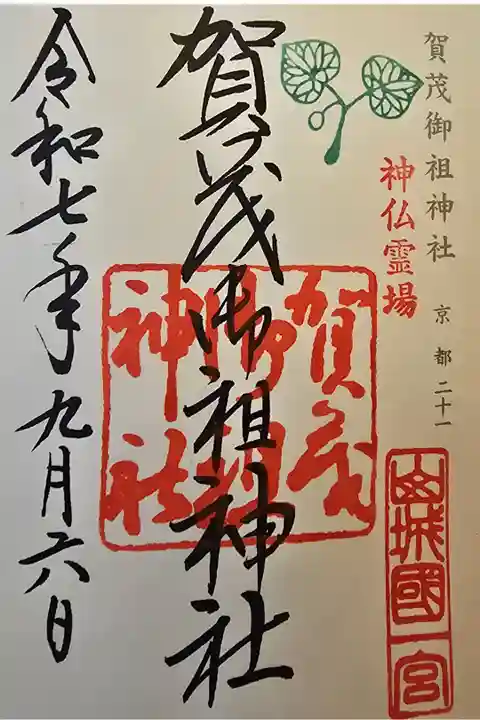 賀茂御祖神社
京都二十一
神仏霊場
山城國一宮
賀茂御祖神社
賀茂御祖神社
令和七年九月六日